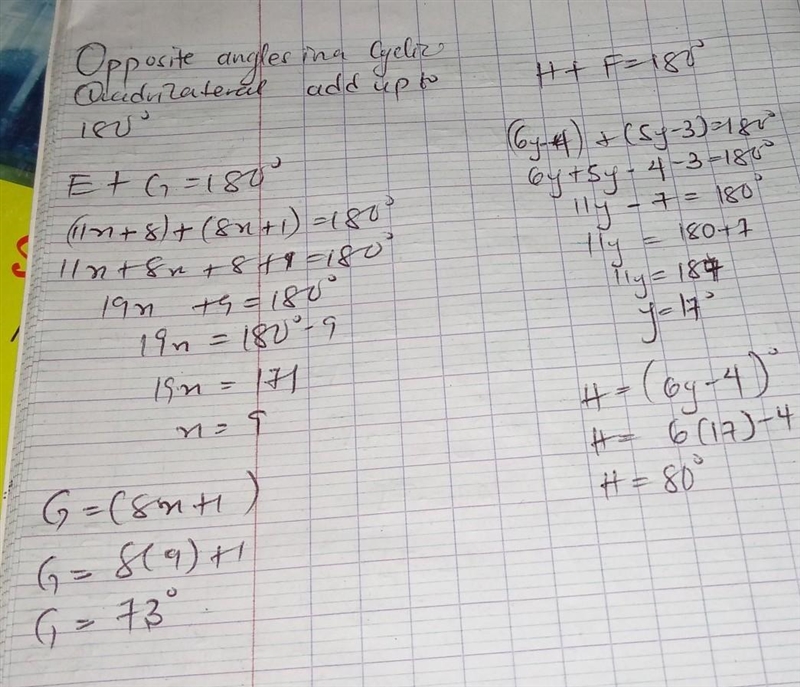 Opposite angles in a Cyclic
Quadrilateral add up to
180°
E + G = 180°
(11x+8)+(8x+1)=180°
11x+8x+8+1=180°
19x +9=180°
19x = 180°-9
19x = 171
x = 9
G=(8x+1)
G= 8(9)+1
G= 73°
H+ F=180°
(6y-4)+(5y-3)=180°
6y+5y-4-3=180°
11y-7=180°
11y = 180+7
11y=187
y=17°
H=(6y-4)°
H= 6(17)-4
H=80°